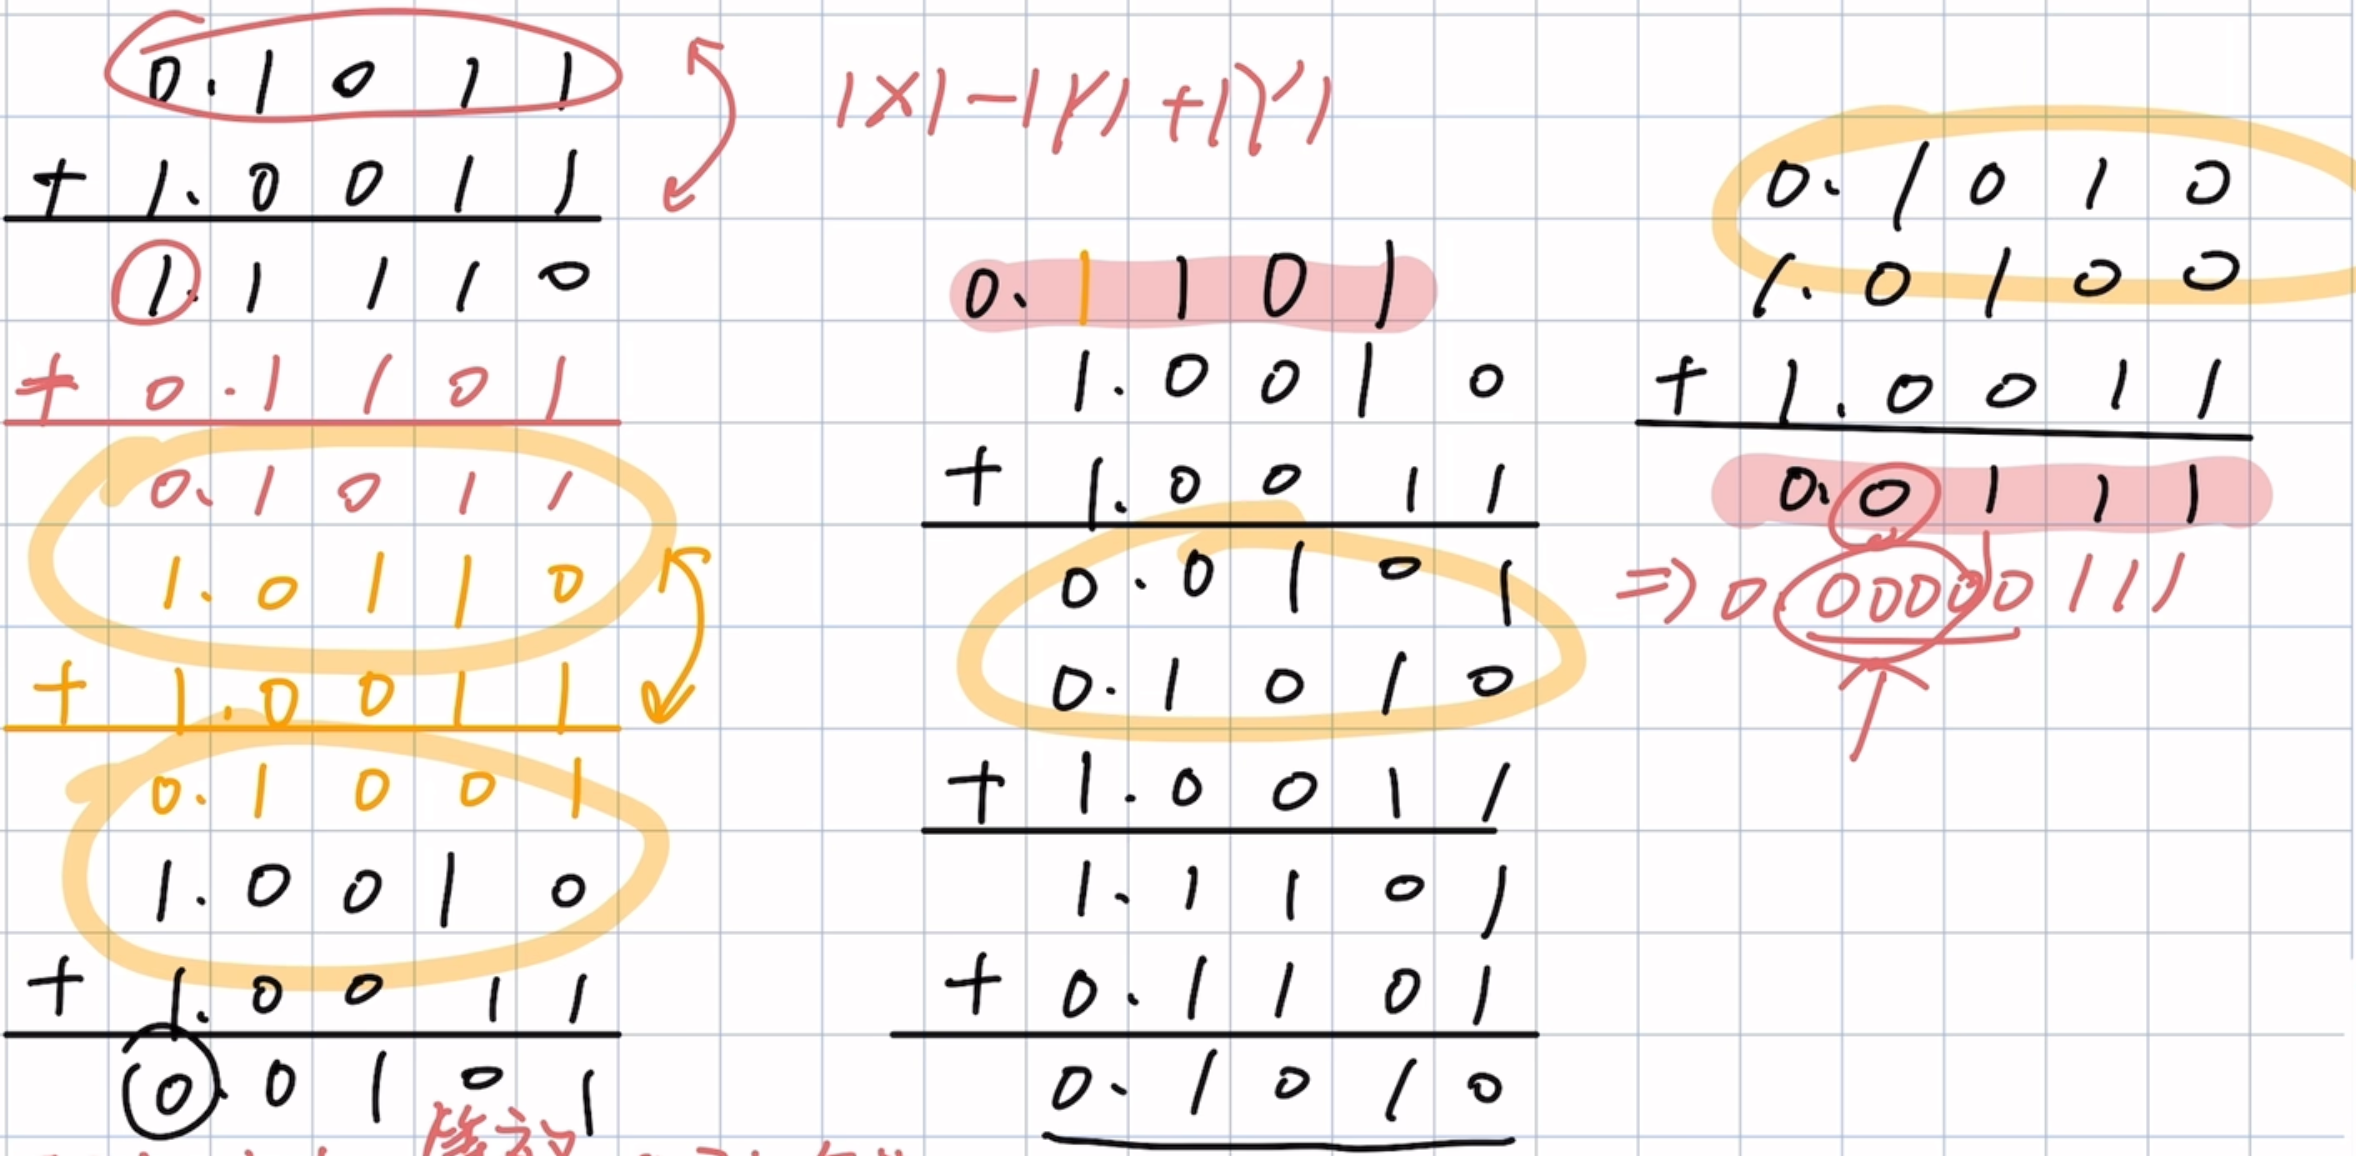 0.1011
+ 1.0011
1.1110
+ 0.1101
0.1011
1.0110
+ 1.0011
0.1001
1.0010
+ 1.0011
0.0101
|X|-|Y|+|Y|
0.1101
1.0010
+ 1.0011
0.0101
0.1010
+ 1.0011
1.1101
+ 0.1101
0.1010
0.1010
1.0100
+ 1.0011
0.0111
=> 0.00000111